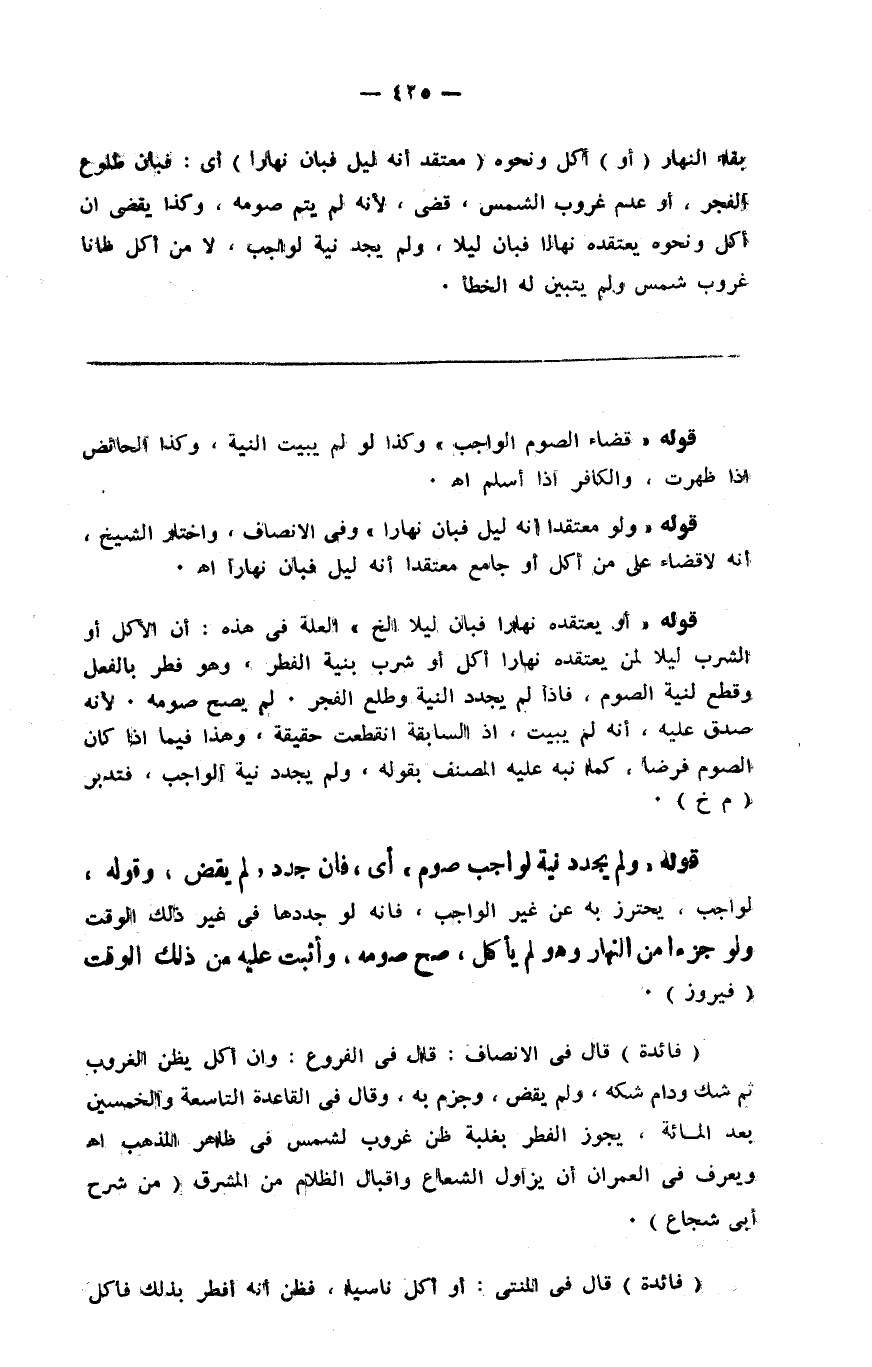 — ٤٢٥ —
بقاء النهار ( أو ) أكل ونحوه ( معتقد أنه ليل فبان نهارا ) أى : فبان طلوع
الفجر ، أو عدم غروب الشمس ، قضى ، لأنه لم يتم صومه ، وكذا يقضى ان
أكل ونحوه يعتقده نهارا فبان ليلا ، ولم يجد نية لواجب ، لا من أكل ظانا
غروب شمس ولم يتبين له الخطأ ٠
قوله « قضاء الصوم الواجب » وكذا لو لم يبيت النية ، وكذا الحائض
اذا ظهرت ، والكافر اذا أسلم اه ٠
قوله « ولو معتقدا أنه ليل فبان نهارا » وفى الانصاف ، واختار الشيخ ،
أنه لاقضاء على من أكل أو جامع معتقدا أنه ليل فبان نهارا اه ٠
قوله « أو يعتقده نهارا فبان ليلا الخ » العلة فى هذه : أن الأكل أو
الشرب ليلا لمن يعتقده نهارا أكل أو شرب بنية الفطر ، وهو فطر بالفعل
وقطع لنية الصوم ، فاذا لم يجدد النية وطلع الفجر ٠ لم يصح صومه ٠ لأنه
صدق عليه ، أنه لم يبيت ، اذ السابقة انقطعت حقيقة ، وهذا فيما اذا كان
الصوم فرضا ، كما نبه عليه المصنف بقوله ، ولم يجدد نية الواجب ، فتدبر
( م خ ) ٠
قوله « ولم يجدد نية لواجب صوم » أى ، فان جدد ، لم يقض ، وقوله ،
لواجب ، يحترز به عن غير الواجب ، فانه لو جددها فى غير ذلك الوقت
ولو جزءا من النهار وهو لم يأكل ، صح صومه ، وأثبت عليه من ذلك الوقت
( فيروز ) ٠
( فائدة ) قال فى الانصاف : قال فى الفروع : وان أكل يظن الغروب
ثم شك ودام شكه ، ولم يقض ، وجزم به ، وقال فى القاعدة التاسعة والخمسين
بعد المائة ، يجوز الفطر بغلبة ظن غروب لشمس فى ظاهر المذهب اه
ويعرف فى العمران أن يزاول الشعاع واقبال الظلام من المشرق ( من شرح
أبى شجاع ) ٠
( فائدة ) قال فى المنتى : أو أكل ناسيا ، فظن أنه أفطر بذلك فأكل